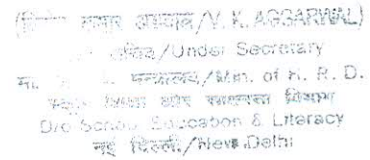 (विनोद कुमार अग्रवाल/V. K. AGGARWAL)
सचिव/Under Secretary
मंत्रालय/Min. of H. R. D.
स्कूल शिक्षा और साक्षरता विभाग
D/o School Education & Literacy
नई दिल्ली/New Delhi